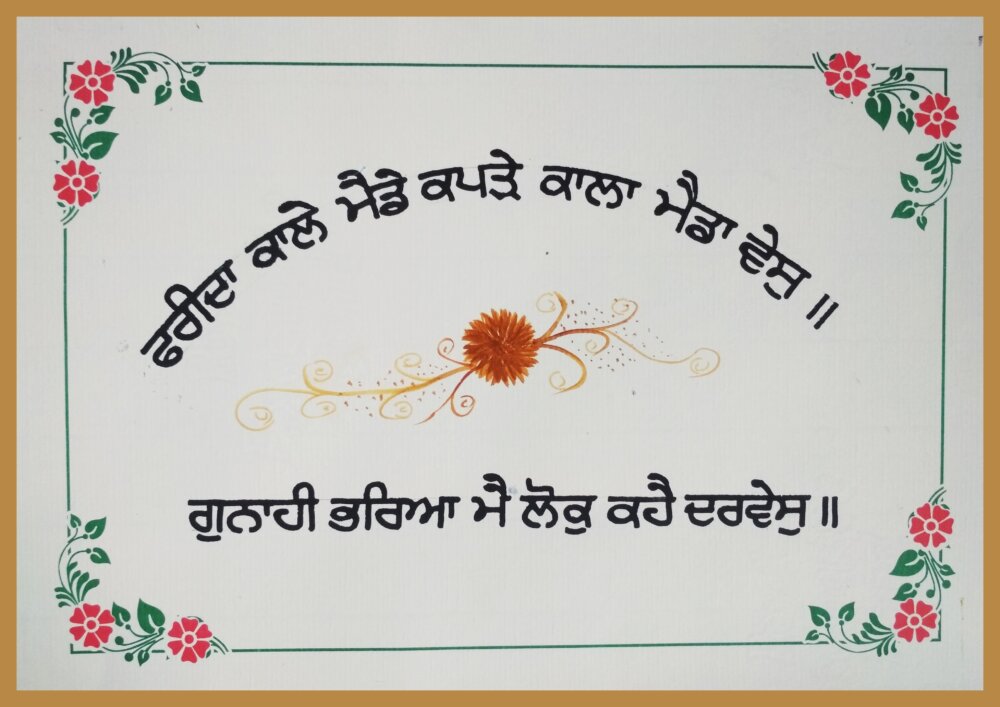 ਫਰੀਦਾ ਕਾਲੇ ਮੈਡੇ ਕਪੜੇ ਕਾਲਾ ਮੈਡਾ ਵੇਸੁ ॥
ਗੁਨਾਹੀ ਭਰਿਆ ਮੈ ਲੋਕੁ ਕਹੈ ਦਰਵੇਸੁ ॥